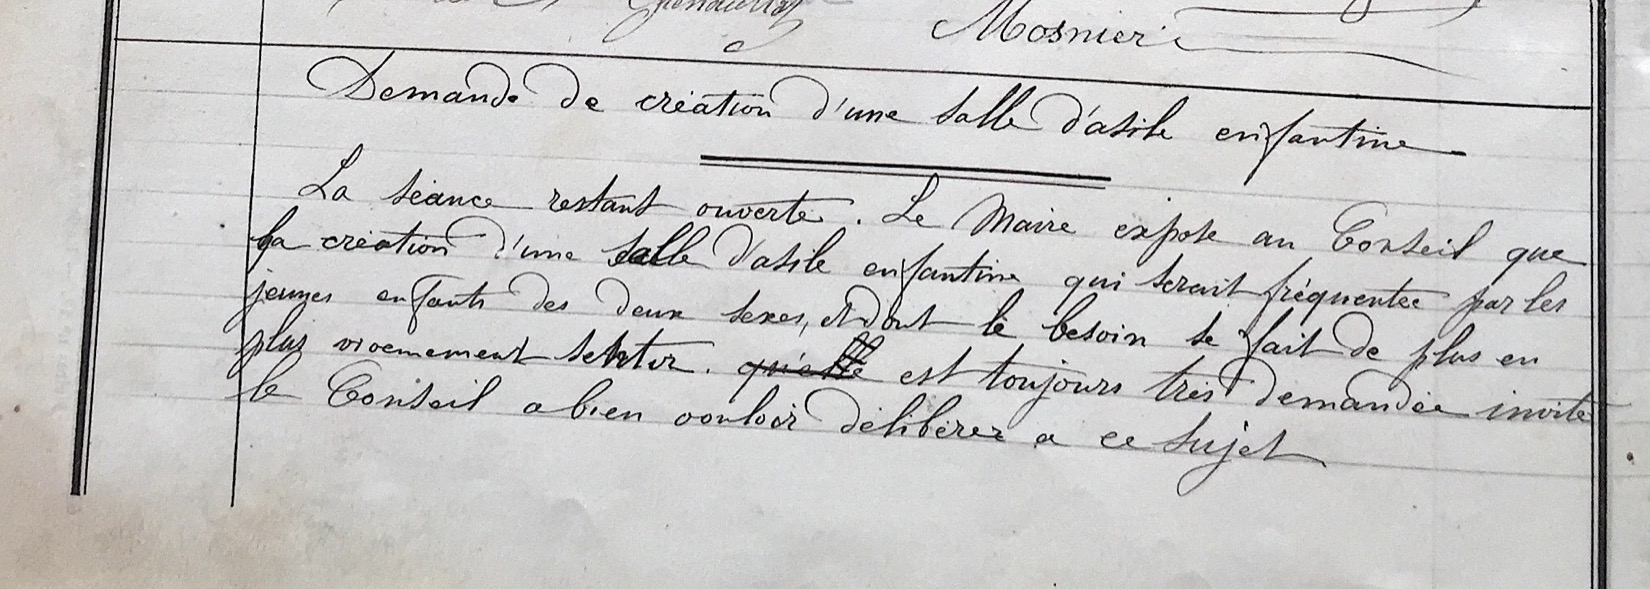 Mosnier
Demande de création d'une salle d'asile enfantine
La séance restant ouverte. Le Maire expose au Conseil que
la création d'une salle d'asile enfantine qui serait fréquentée par les
jeunes enfants des deux sexes, et dont le besoin se fait de plus en
plus vivemement sentir. qu'elle est toujours très demandée invite
le Conseil a bien vouloir délibérer a ce sujet